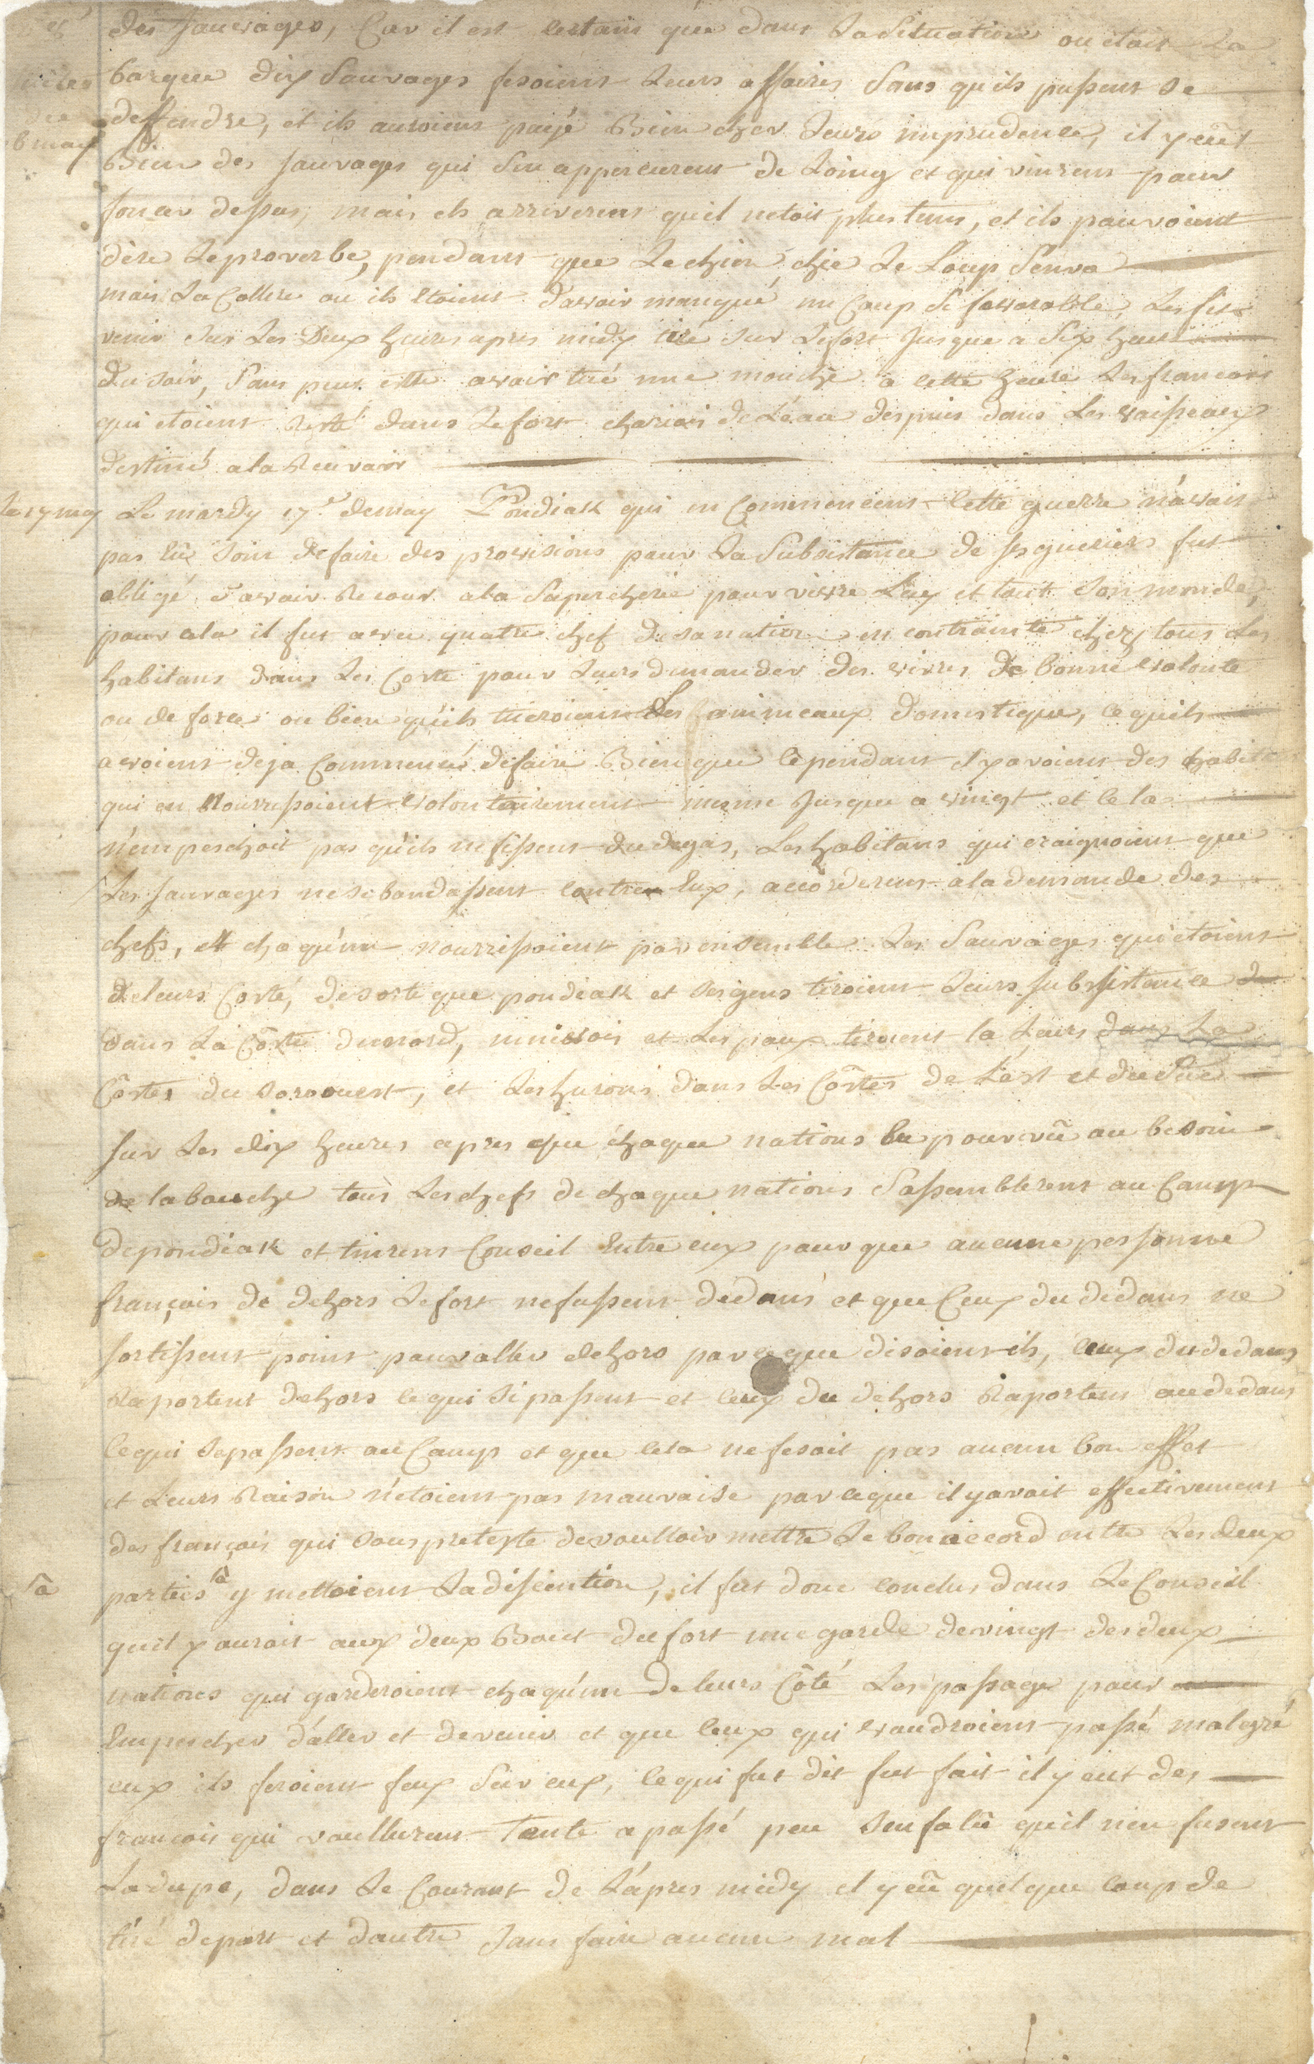 des Sauvages, Car il est certain que dans la Situation ou étoit la
barque dix Sauvages fesoient leurs affaires Sans quils pussent se
deffendre, et ils auroient payé Bien cher leurs imprudence, il y eût
Bien des Sauvages qui sen apperceurent de Loing et qui vinrent pour
foncer dessus, mais ils arriverent quil netoit plus tems, et ils pouvoient
dire le proverbe, pendant que le chien chie le Loup Senva
mais la Collere ou ils etoient d'avoir manqué un Coup si favorable, les fit
venir sur les Deux heures apres midy tiré sur le fort Jusque a Six heure
du soir, Sans peut etre avoir tué une mouche a cette heure les francois
qui etoient resté dans le fort de L'eau des puis dans les vaisseaux
destiné a la Recevoir
le 17 may Le mardy 17e de may Pondiak qui en Commencent cette guerre n'avoit
pas eûe soin de faire des provisions pour la Subsistance de ses gueriers fut
obligé d'avoir Recour a la Supercherie pour vivre Luy et tout son monde,
pour cela il fut avec quatre chef de sa nation en contrainte chez tous les
habitans dans les Coste pour leurs demander des vivres de bonne volonté
ou de force ou bien qu'ils tueroient Les animeaux domestique, ce quils
avoient deja Commencé de faire Bien que cependant il y avoient des habit
qui en Nourrissoient volontairement meme Jusque a vingt et cela
n'empeschoit pas qu'ils ne fissent du degas, Les habitans qui craignoient que
les Sauvages ne se bandassent contre Eux, accorderent a la demande des
chefs, et chaqu'un nourrissoient par ensemble les Sauvages qui etoient
de leurs Costé, de sorte que pondiak et ses gens tiroient leurs subsistance
dans la Côste du nord, ninivois et les poux tiroient la Leurs dans la
Côstes du sorouest, et les hurons dans les Côstes de L'est et du Sue
Sur les dix heures apres que chaque nations eu pourvû au besoin
de la bouche tous les chefs de chaque nations S'assemblerent au Camp
de pondiak et tinrent Conseil Entre eux pour que aucune personne
françois de dehors le fort ne fussent dédans et que Ceux du dedans ne
sortissent point pour aller dehors parceque disoient ils, ceux du dedans
Raportent dehors ce qui si passent et ceux du dehors Raportent au dedans
ce qui se passent au Camp et que cela ne fesoit pas aucun bon effet
et Leurs Raison n'etoient pas mauvaise parceque il y avoit effectivement
des françois qui sous pretexte de voulloir mettre le bon accord entre les deux
parties y mettoient la disscention, il fut donc conclus dans le Conseil
quil y auroit aux deux Bout du fort une garde de vingt des deux
nations qui garderoient chaqu'un de leurs Côté les passage pour
Empescher d'aller et de venir et que ceux qui voudroient passé malgré
eux ils feroient feux Sur eux, ce qui fut dit fut fait il y eut des
francois qui voullurent Tenté a passé peu sen falû quil nen fusent
La dupe, dans le Courant de L'apres midy il y eû quelque coup de
tiré de part et d'autre Sans faire aucun mal